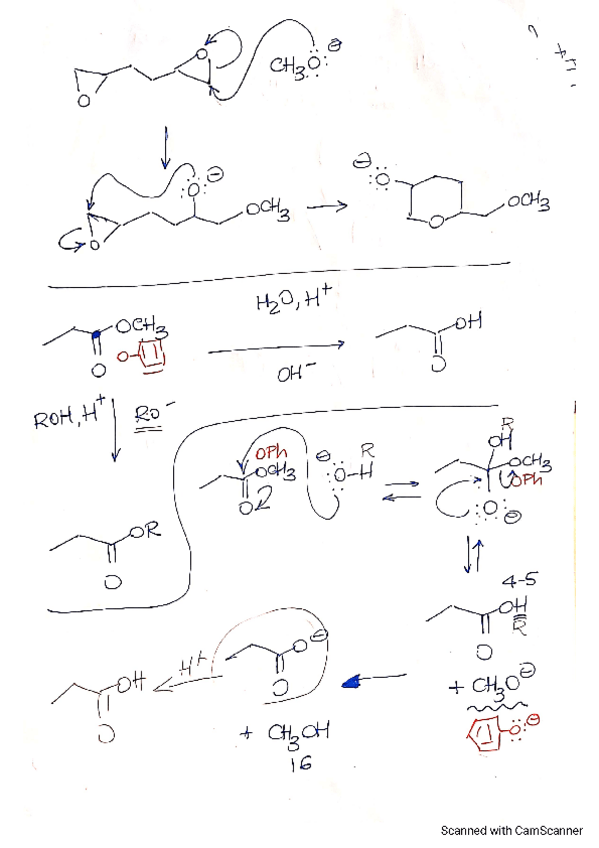 O
CH₃O ⊖
H+
O
O ⊖
OCH₃
O
⊖ O
OCH₃
O
H₂O, H+
OCH₃
O
O
OH⁻
OH
O
ROH, H+
RO⁻
OPh
OCH₃
O
⊖
R
O-H
R
OH
OCH₃
OPh
O ⊖
OR
O
4-5
OH
R
O
+ CH₃O ⊖
O ⊖
O ⊖
O
H+
OH
O
+ CH₃OH
16
Scanned with CamScanner